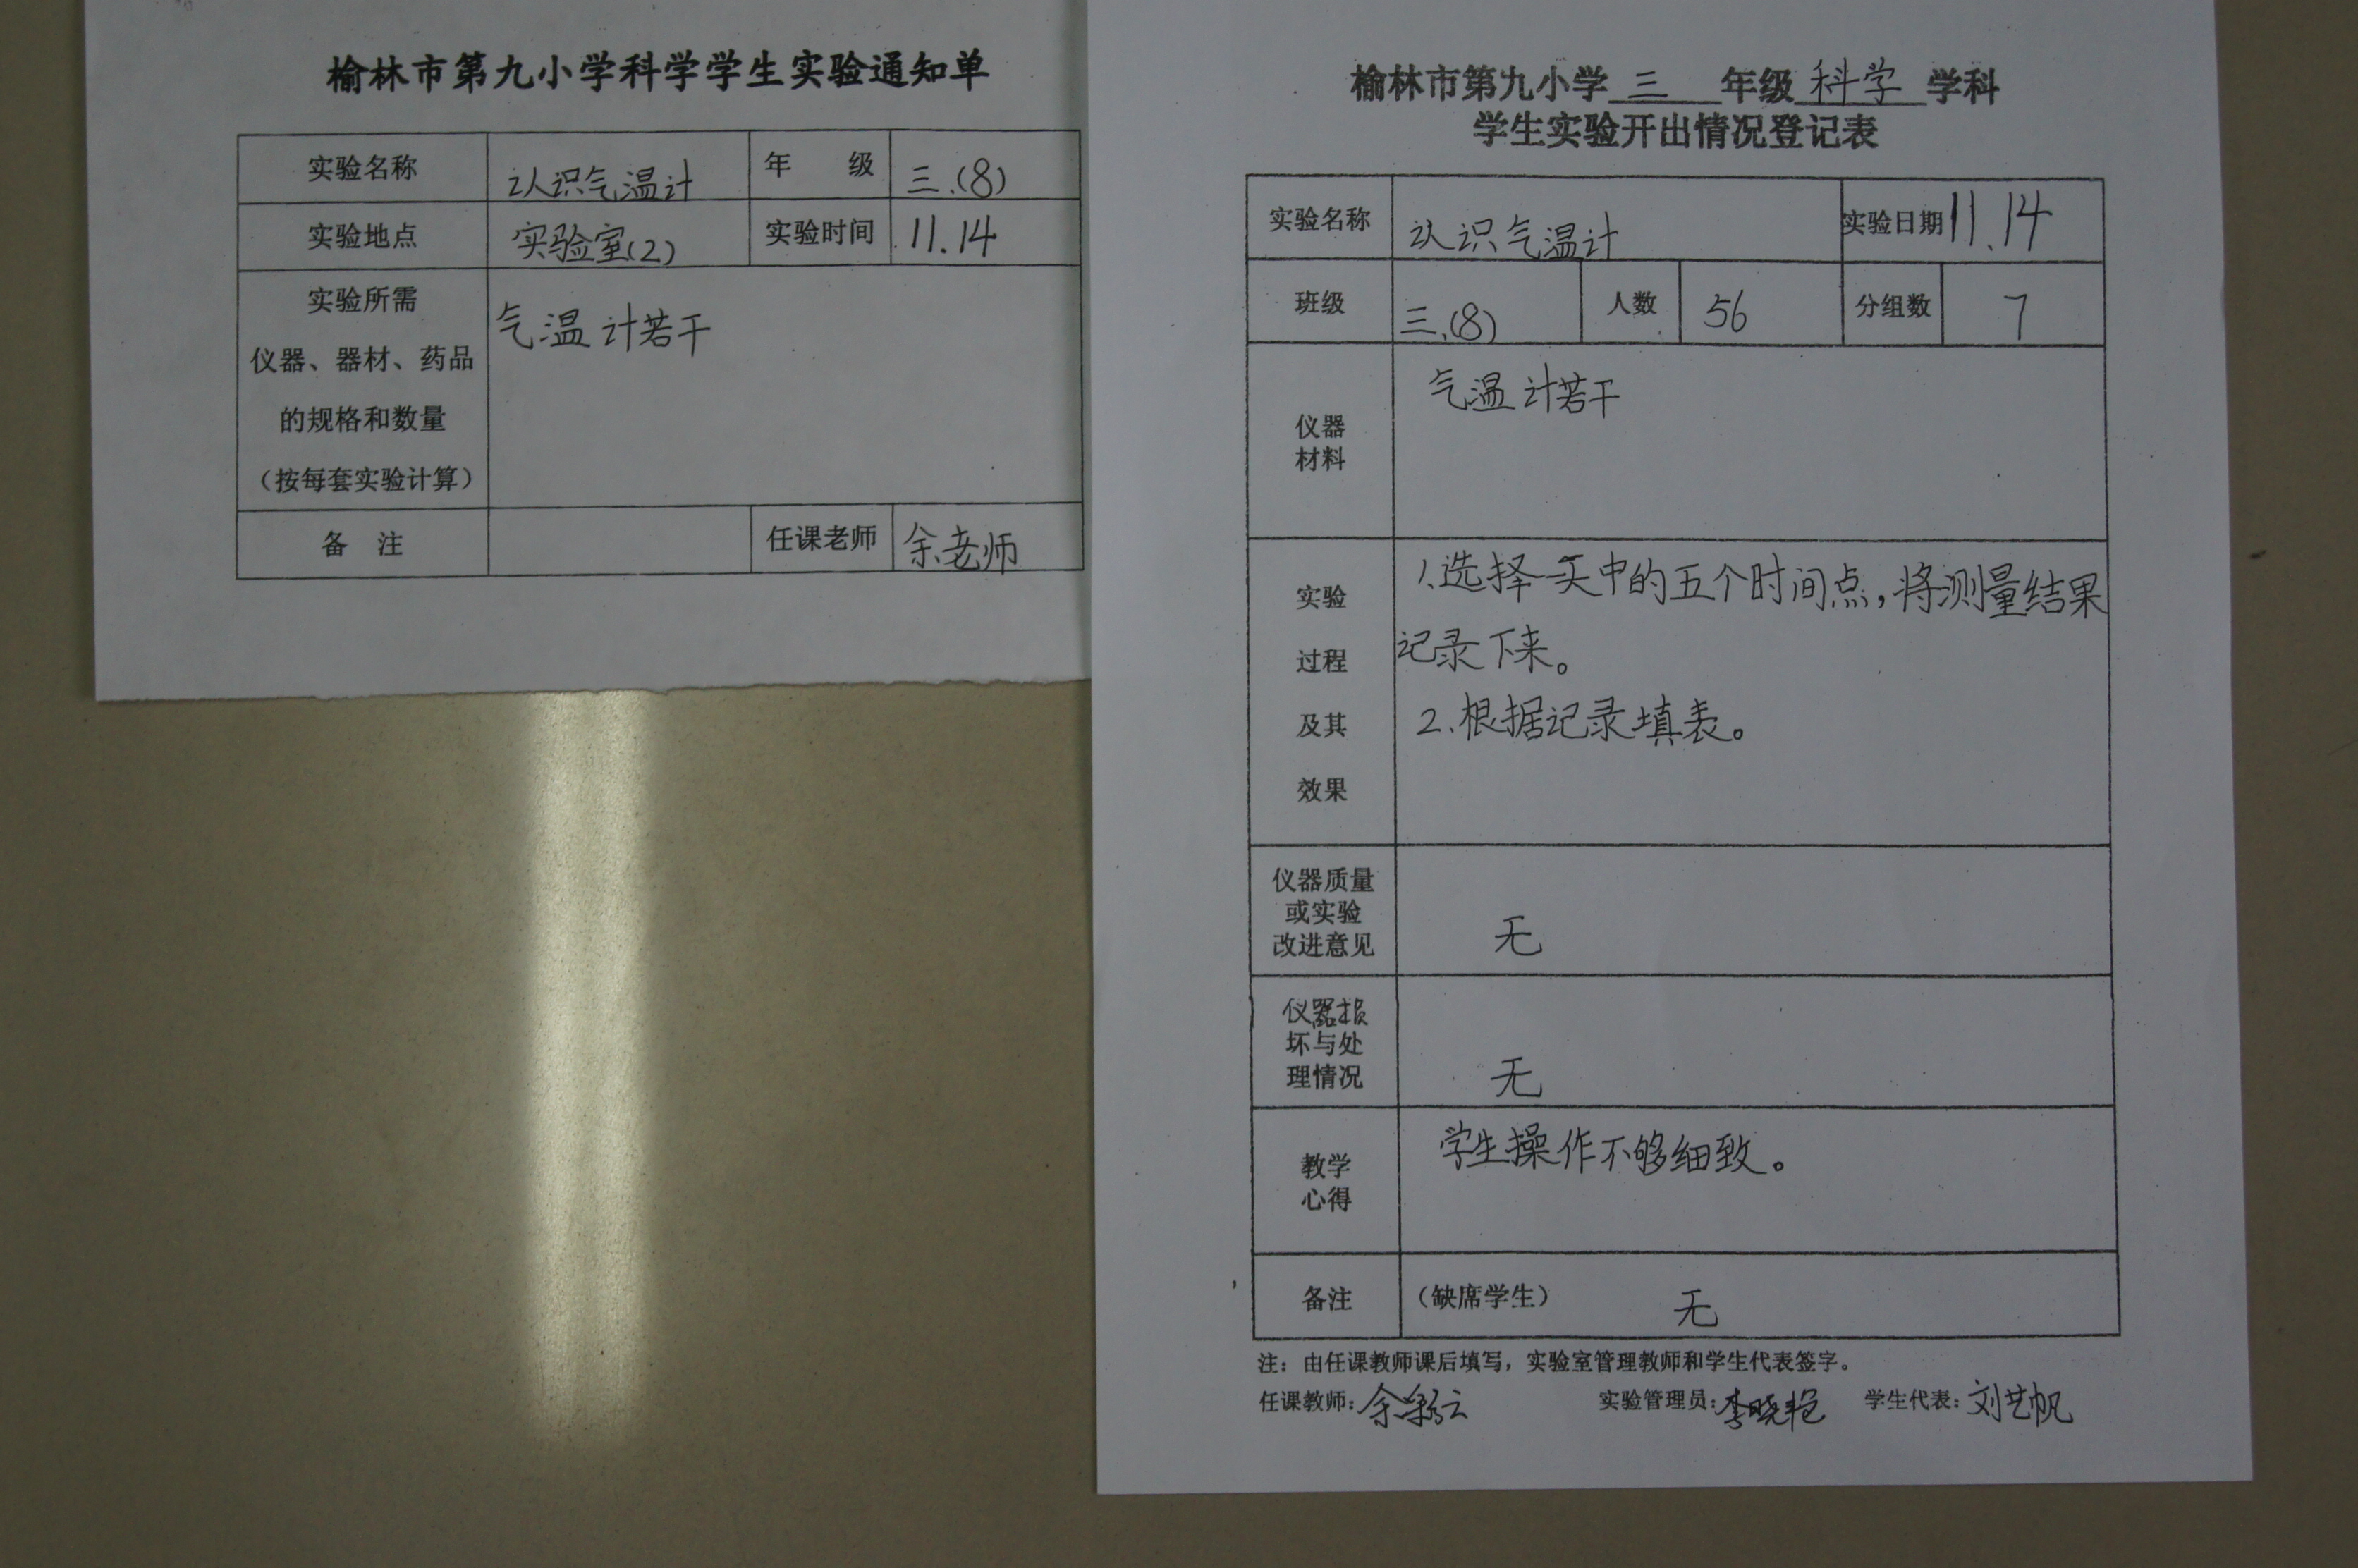 榆林市第九小学科学学生实验通知单
实验名称 认识气温计 年 级 三.(8)
实验地点 实验室(2) 实验时间 11.14
实验所需
仪器、器材、药品
的规格和数量
(按每套实验计算)
气温计若干
备 注 任课老师 余老师
榆林市第九小学 三 年级 科学 学科
学生实验开出情况登记表
实验名称 认识气温计 实验日期 11.14
班级 三.(8) 人数 56 分组数 7
仪器
材料
气温计若干
实验
过程
及其
效果
1.选择一天中的五个时间点,将测量结果
记录下来。
2.根据记录填表。
仪器质量
或实验
改进意见
无
仪器损
坏与处
理情况
无
教学
心得
学生操作不够细致。
备注 (缺席学生) 无
注:由任课教师课后填写,实验室管理教师和学生代表签字。
任课教师: 余 实验管理员: 李晓艳 学生代表: 刘艺帆